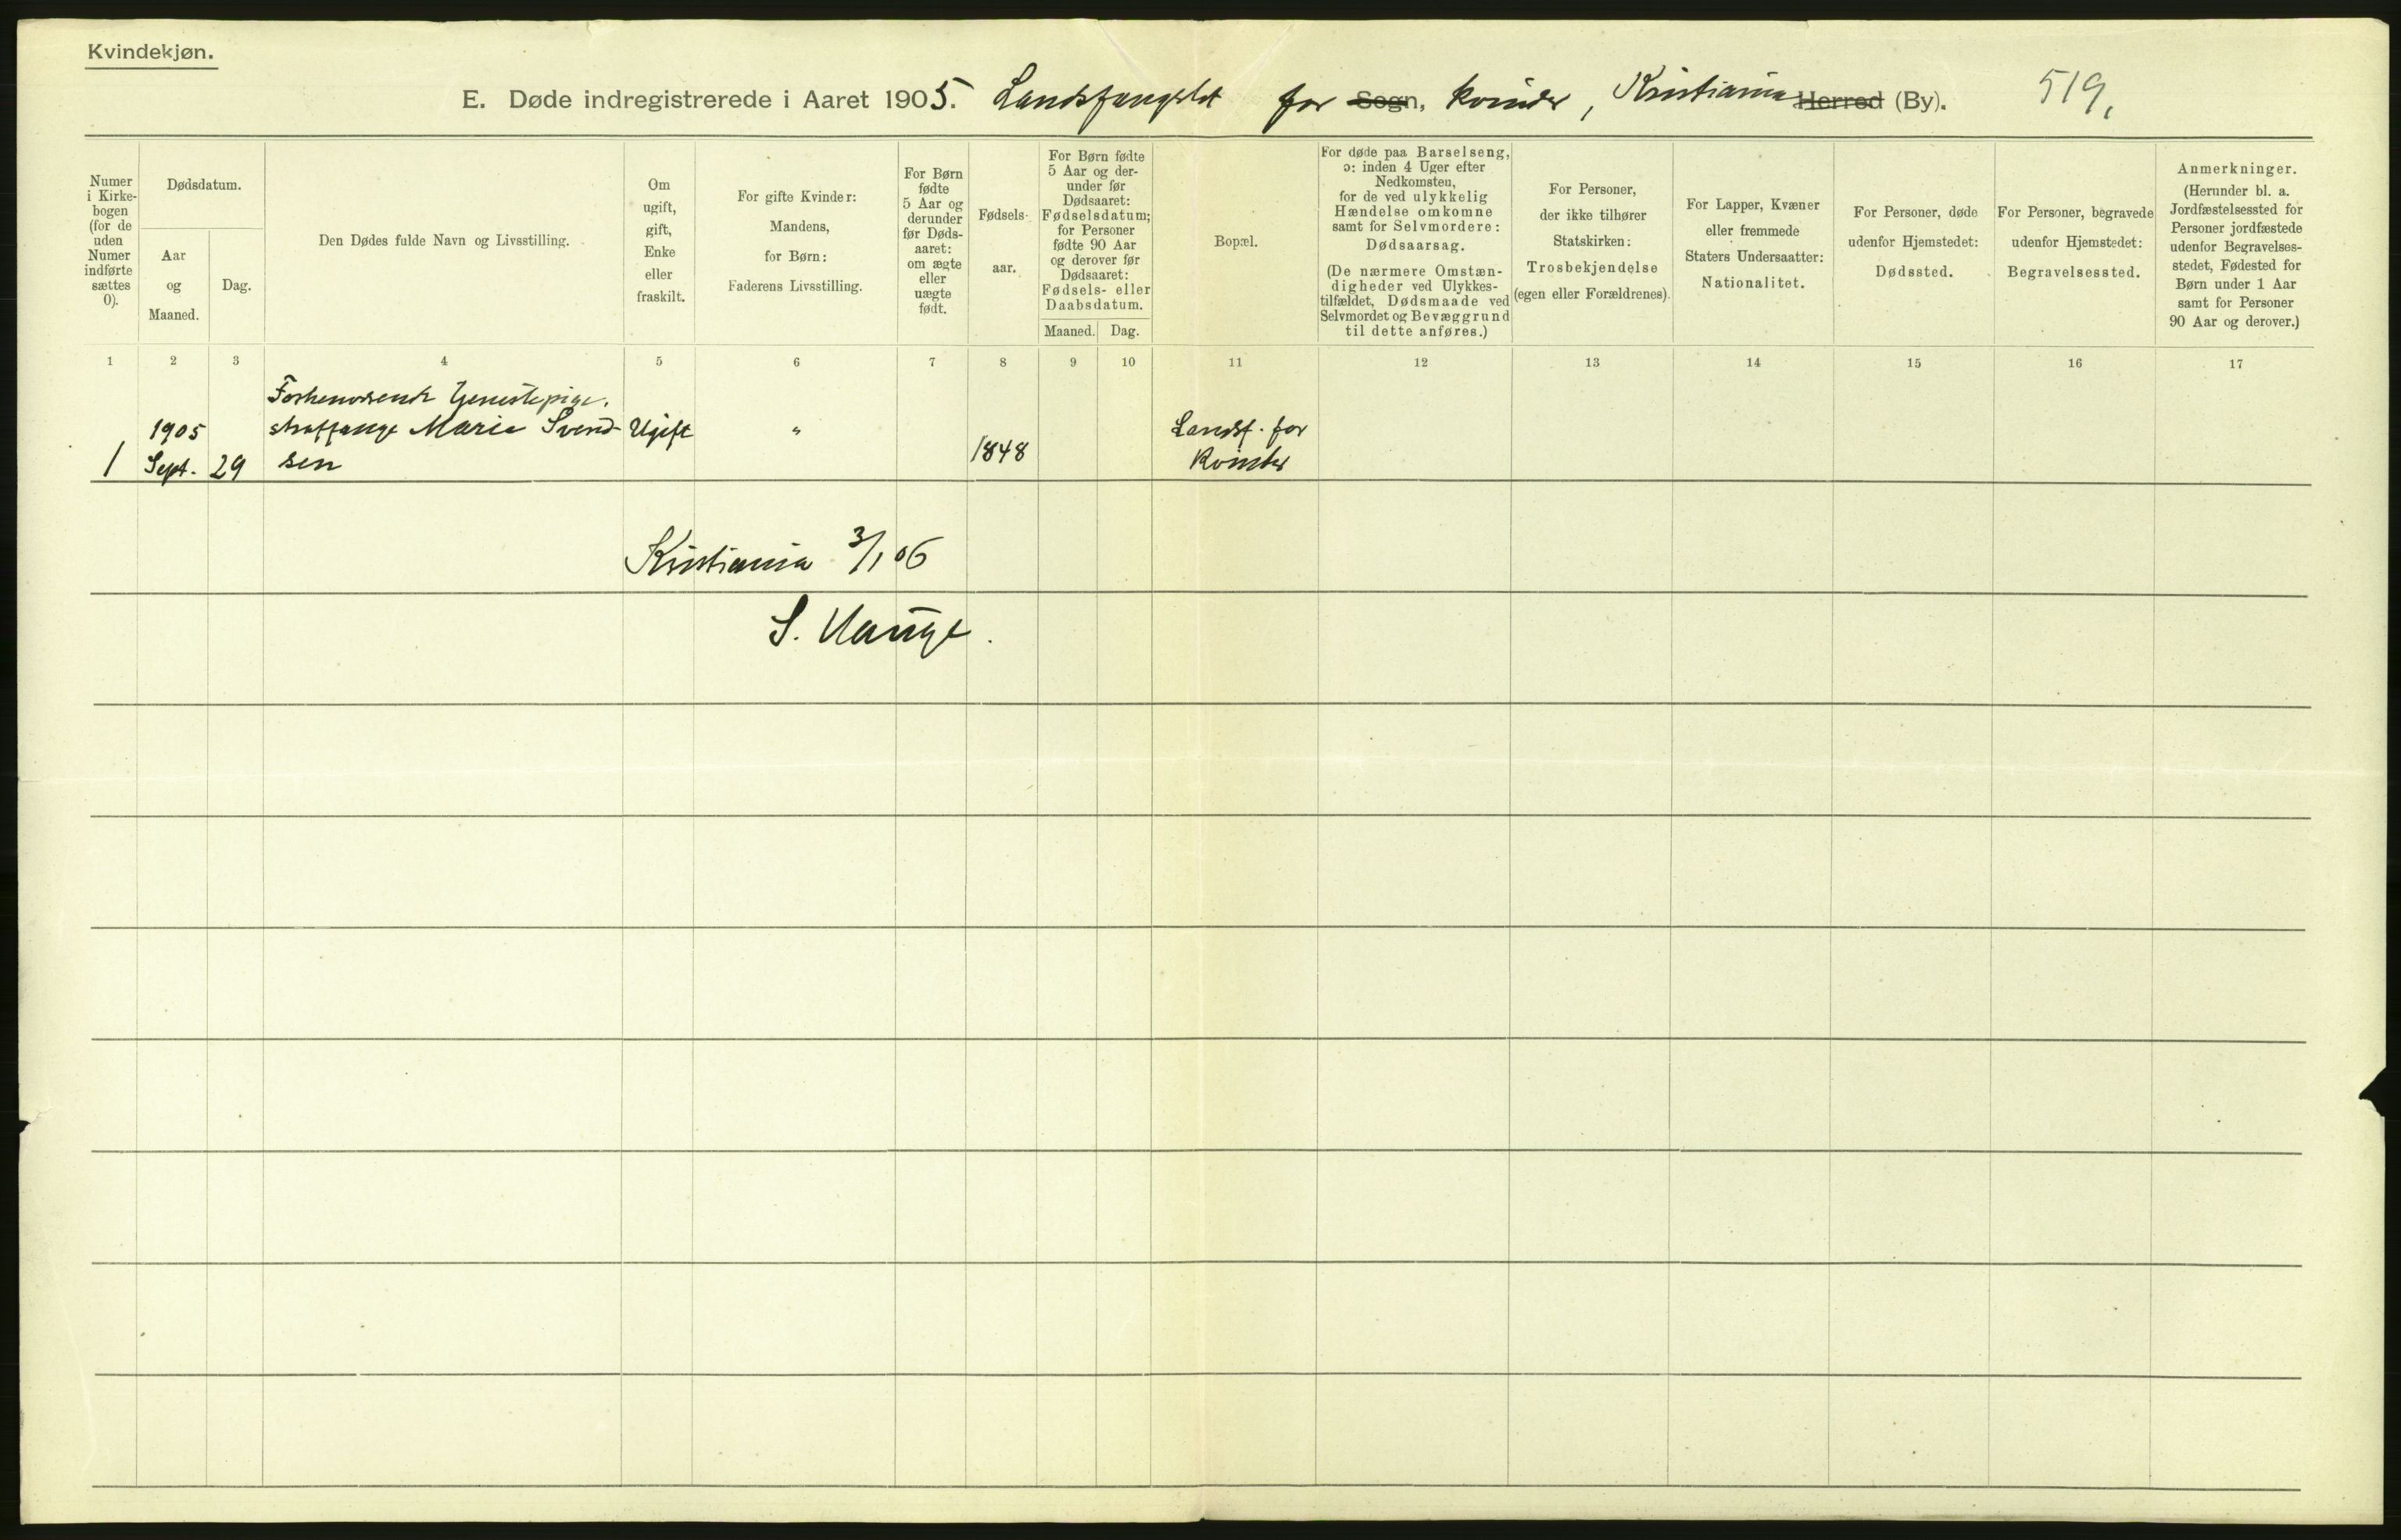 Kvindekjøn.
E. Døde indregistrerede i Aaret 1905. Landsfængslet for Sogn, kvinder, Kristiania Herred (By). 519,
Numer
i Kirke-
bogen
(for de
uden
Numer
indførte
sættes
0).
Dødsdatum.
Aar
og
Maaned.
Dag.
Den Dødes fulde Navn og Livsstilling.
Om
ugift,
gift,
Enke
eller
fraskilt.
For gifte Kvinder:
Mandens,
for Børn:
Faderens Livsstilling.
For Børn
fødte
5 Aar og
derunder
før Døds-
aaret:
om ægte
eller
uægte
født.
Fødsels-
aar.
For Børn fødte
5 Aar og der-
under før
Dødsaaret:
Fødselsdatum;
for Personer
fødte 90 Aar
og derover før
Dødsaaret:
Fødsels- eller
Daabsdatum.
Maaned. Dag.
Bopæl.
For døde paa Barselseng,
ɔ: inden 4 Uger efter
Nedkomsten,
for de ved ulykkelig
Hændelse omkomne
samt for Selvmordere:
Dødsaarsag.
(De nærmere Omstæn-
digheder ved Ulykkes-
tilfældet, Dødsmaade ved
Selvmordet og Bevæggrund
til dette anføres.)
For Personer,
der ikke tilhører
Statskirken:
Trosbekjendelse
(egen eller Forældrenes).
For Lapper, Kvæner
eller fremmede
Staters Undersaatter:
Nationalitet.
For Personer, døde
udenfor Hjemstedet:
Dødssted.
For Personer, begravede
udenfor Hjemstedet:
Begravelsessted.
Anmerkninger.
(Herunder bl. a.
Jordfæstelsessted for
Personer jordfæstede
udenfor Begravelses-
stedet, Fødested for
Børn under 1 Aar
samt for Personer
90 Aar og derover.)
1 2 3 4 5 6 7 8 9 10 11 12 13 14 15 16 17
Forhenværende Tjenestepige,
1905 straffange Marie Svend- Ugift " Landsf. for
1 Sept. 29 sen 1848 Kvinder
Kristiania 3/1 06
S. Hauge.